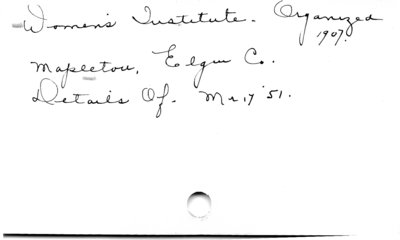 Women's Institute. Organized
1907.
Mapleton, Elgin Co.
Details Of. Mr 17 '51.